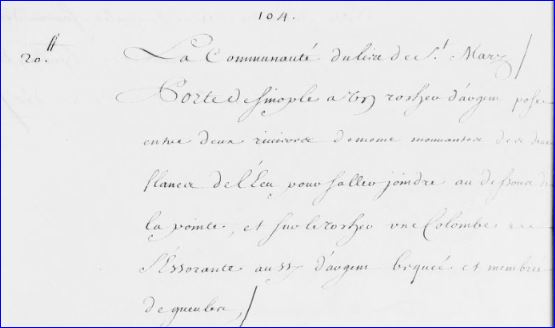 104.
20.ᵗᵗ
La Communauté du lieu de S.ᵗ Marz/
Porte de sinople a un rocher d'argent posé
entre deux rivieres de meme mouvantes des deux
flancs de l'Ecu pour saller joindre au dessous de
la pointe, et sur le rocher une Colombe
s'Essorante aussy d'argent bequée et membrée
de gueules,/